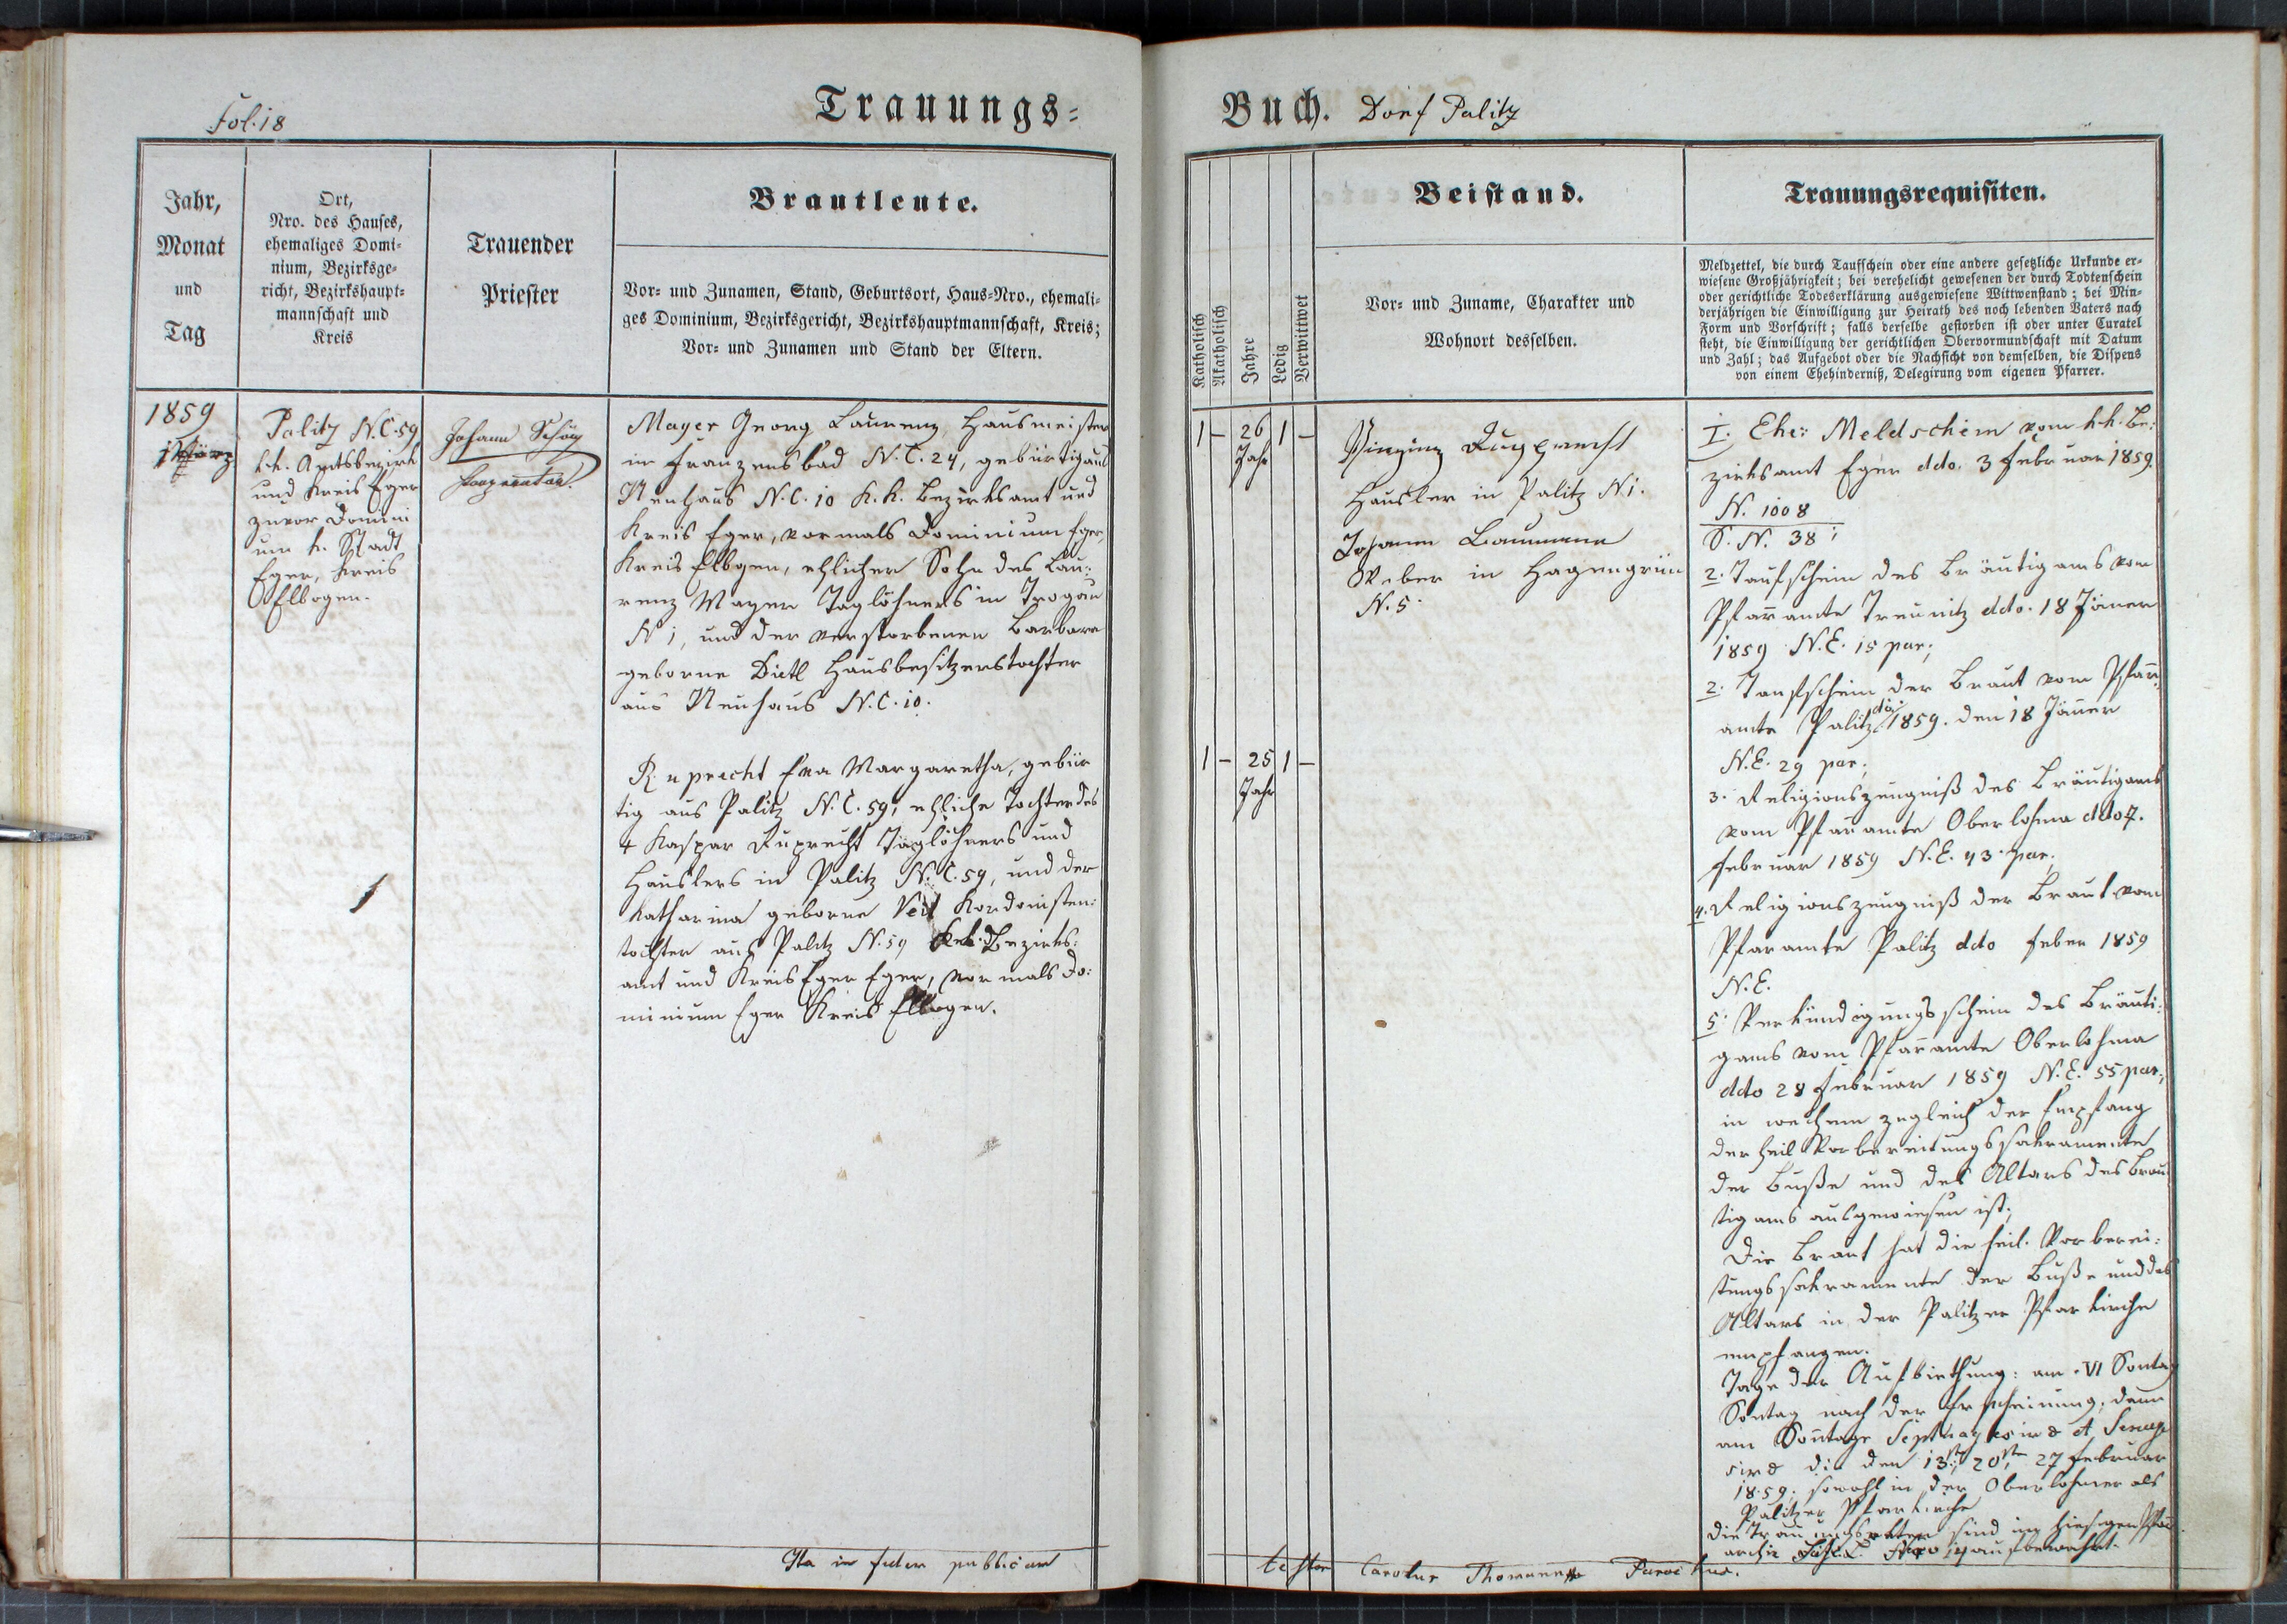 Fol. 18
Trauungs-
Jahr,
Monat
und
Tag
Ort,
Nro. des Hauses,
ehemaliges Domi-
nium, Bezirksge-
richt, Bezirkshaupt-
mannschaft und
Kreis
Trauender
Priester
Brautleute.
Vor- und Zunamen, Stand, Geburtsort, Haus-Nro., ehemali-
ges Dominium, Bezirksgericht, Bezirkshauptmannschaft, Kreis;
Vor- und Zunamen und Stand der Eltern.
1859
1 März
Palitz N.C. 59
k.k. Amtsbezirk
und Kreis Eger
zuvor Domini
um k. Stadt
Eger, Kreis
Ellbogen.
Johann Schön
Cooperator.
Mayer Georg Laurenz, Hausmeister
in Franzensbad N.C. 24, gebürtig aus
Neuhaus N.C. 10 k.k. Bezirksamt und
Kreis Eger, vormals Dominium Eger,
Kreis Ellbogen, ehlicher Sohn des Lau-
renz Mayer Taglöhners in Trogau
N 1, und der verstorbenen Barbara
geborne Dietl Hausbesitzerstochter
aus Neuhaus N.C. 10.
Ruprecht Eva Margaretha, gebür
tig aus Palitz N.C. 59, ehliche Tochter des
+ Kaspar Ruprecht Taglöhners und
Häuslers in Palitz N.C. 59, und der
Katharina geborne Veit Kordonisten:
tochter aus Palitz N. 59 k.k. Bezirks:
amt und Kreis Eger Eger, vormals Do:
minium Eger Kreis Ellbogen.
Ita in fidem publicam
Buch. Dorf Palitz
Katholisch
Akatholisch
Jahre
Ledig
Verwittwet
Beistand.
Vor- und Zuname, Charakter und
Wohnort desselben.
Trauungsrequisiten.
Meldzettel, die durch Taufschein oder eine andere gesetzliche Urkunde er-
wiesene Großjährigkeit; bei verehelicht gewesenen der durch Todtenschein
oder gerichtliche Todeserklärung ausgewiesene Wittwenstand; bei Min-
derjährigen die Einwilligung zur Heirath des noch lebenden Vaters nach
Form und Vorschrift; falls derselbe gestorben ist oder unter Curatel
steht, die Einwilligung der gerichtlichen Obervormundschaft mit Datum
und Zahl; das Aufgebot oder die Nachsicht von demselben, die Dispens
von einem Ehehinderniß, Delegirung vom eigenen Pfarrer.
1 – 26 1 –
Jahr
1 – 25 1 –
Jahr
Ruprecht
Häusler in Palitz N 1.
Johann Baumann
Weber in Hagengrün
N. 5.
I. Ehe: Meldschein vom k.k. Be:
zirksamt Eger ddo. 3 Februar 1859.
N. 1008
S. N. 38;
2. Taufschein des Bräutigams vom
Pfarramte Treunitz ddo. 18 Jäner
1859 N.E. 15 par;
2. Taufschein der Braut vom Pfarr
amte Palitz ddo 1859. den 18 Jäner
N.E. 29 par;
3. Religionszeugniß des Bräutigams
vom Pfarramte Oberlohma ddo 7.
Februar 1859 N.E. 43 par;
4. Religionszeugniß der Braut vom
Pfarramte Palitz ddo Feber 1859
N.E.
5. Verkündigungsschein des Bräuti:
gams vom Pfarramte Oberlohma
ddo 28 Februar 1859 N.E. 55 par;
in welchem zugleich der Empfang
der heil Vorbereitungssakramente
der Buße und des Altars des Bräu
tigams ausgewiesen ist;
Die Braut hat die heil. Vorberei:
tungssakramente der Buße und des
Altars in der Palitzer Pfarkirche
empfangen.
Tage der Aufbiethung: am VI Sontag
Sontag nach der Erscheinung, dann
am Sontage Septuag et Sexag
die den 13t, 20st 27 Februar
1859: sowohl in der Oberlohmer als
Palitzer Pfarkirche
die Trauungsakten sind im hiesigen Pfar
archiv aufbewahrt.
testor Carolus Thomann Parochus.